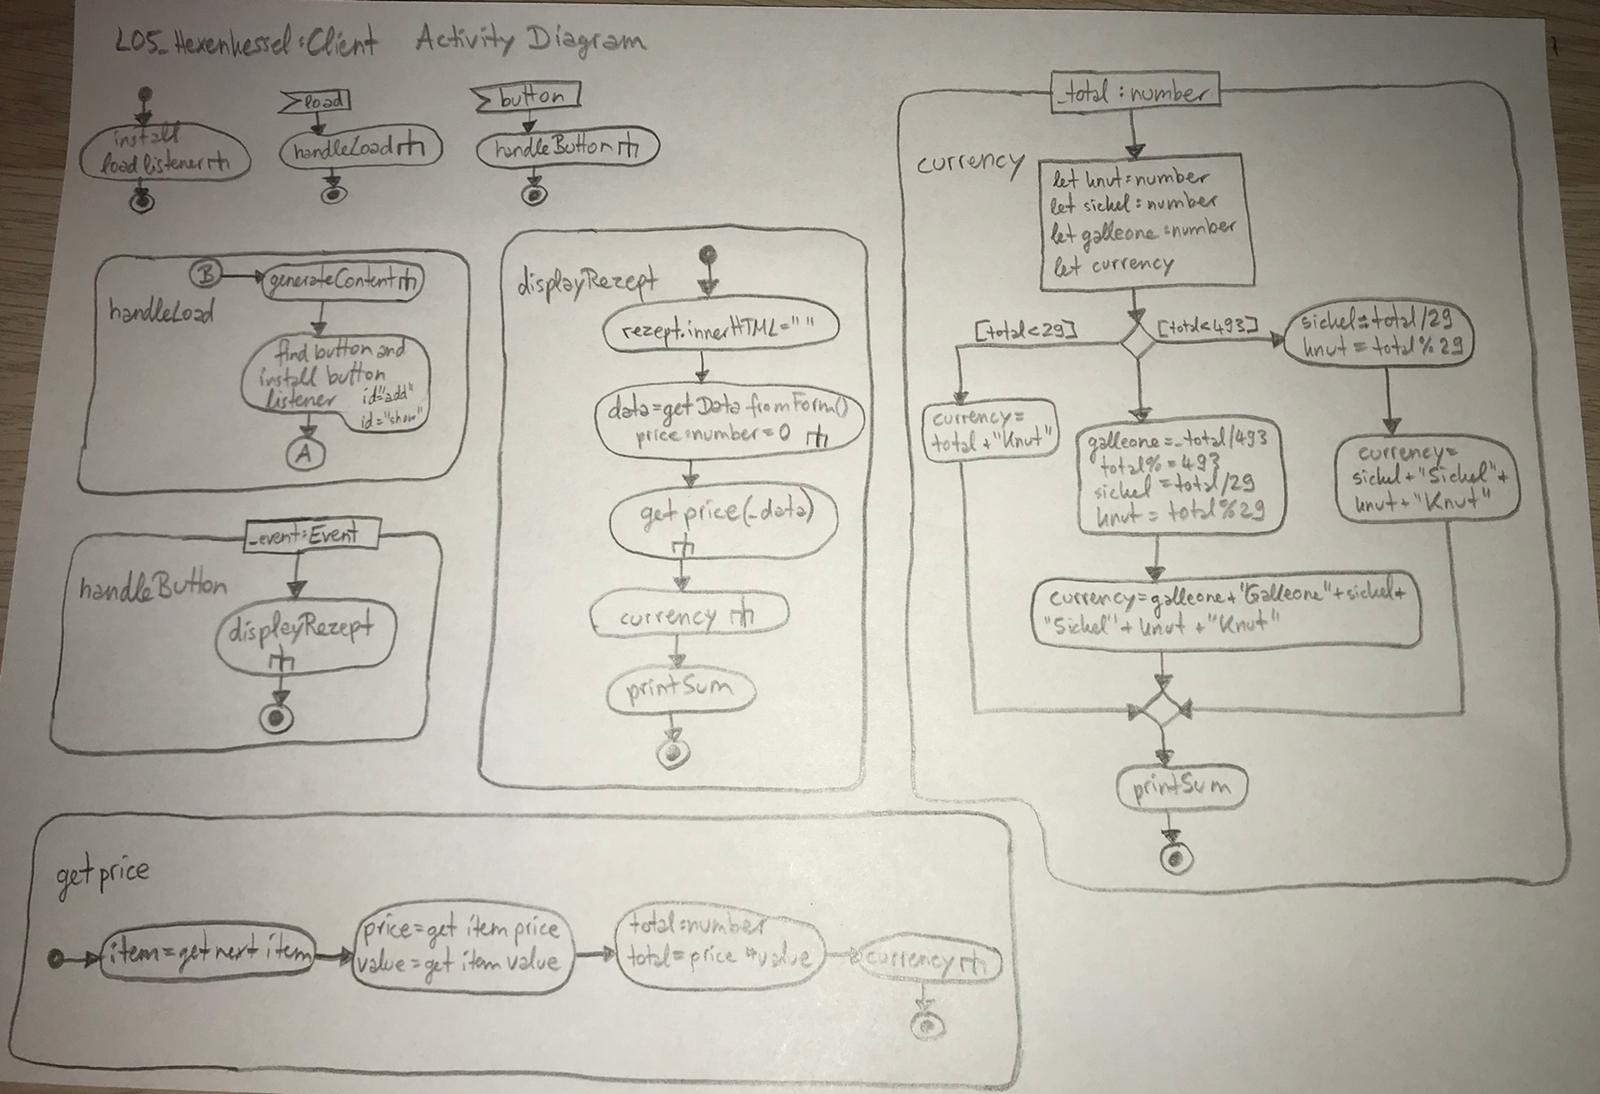 L05_Hexenkessel:Client Activity Diagram
install
load listener
load
handleLoad
button
handleButton
handleLoad
B
generateContent
find button and
install button
listener id="add"
id="show"
A
_event:Event
handleButton
displayRezept
displayRezept
rezept.innerHTML=" "
data=getDatafromForm()
price:number=0
get price(_data)
currency
printSum
_total:number
currency
let knut:number
let sickel:number
let galleone:number
let currency
[total<29]
[total<493]
sickel=total/29
knut=total%29
currency=
total+"Knut"
galleone=_total/493
total%=493
sickel=total/29
knut=total%29
currency=
sickel+"Sickel"+
knut+"Knut"
currency=galleone+"Galleone"+sickel+
"Sickel"+knut+"Knut"
printSum
get price
item=get next item
price=get item price
value=get item value
total:number
total=price*value
currency